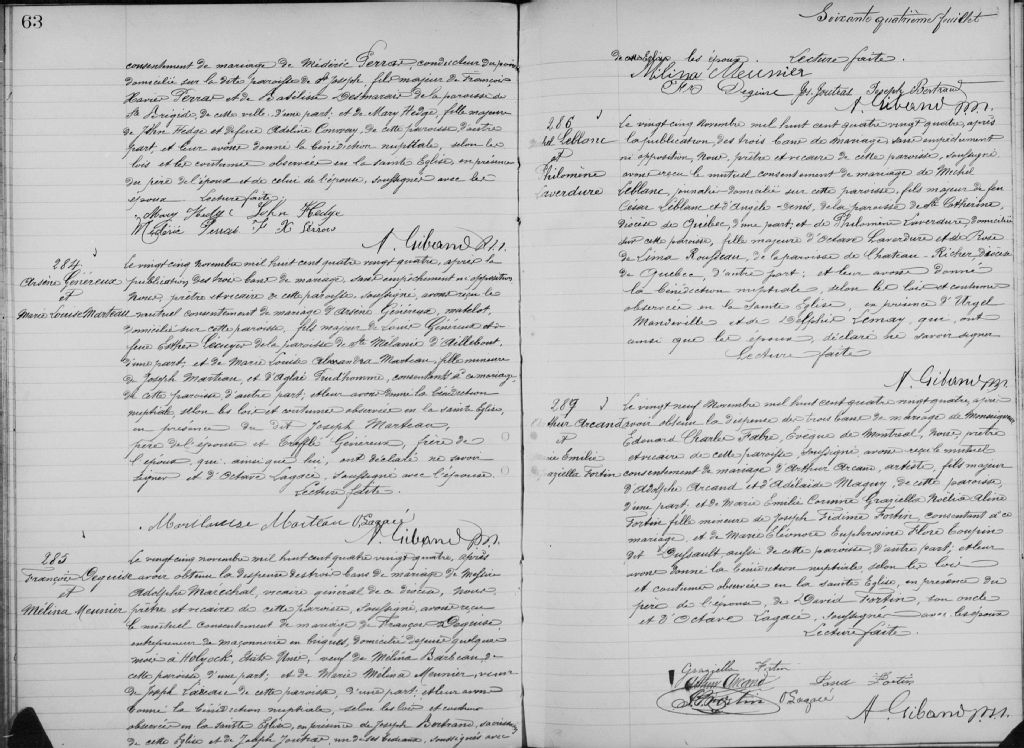 63
consentement de mariage de Médéric Perras conducteur
domicilié sur la dite paroisse de St Joseph, fils majeur de François
Xavier Perras et de Bathilde Desmarais de la paroisse de
Ste Brigide, de cette ville, d'une part; et de Mary Hedge, fille majeure
de John Hedge et de feue Adeline Conway, de cette paroisse d'autre
part, et leur avons donné la Bénédiction nuptiale, selon les
lois et les coutumes observées en la sainte Eglise, en présence
du père de l'époux et de celui de l'épouse, soussignés avec les
époux. Lecture faite.
Mary Hedge John Hedge
Médéric Perras F X Perras
A. Giband ptr.
284
Arsène Généreux
et
Marie Louise Marteau
Le vingt cinq Novembre mil huit cent quatre vingt quatre, après la
publication des trois bans de mariage, sans empêchement ni opposition
Nous, prêtre et vicaire de cette paroisse, soussigné, avons reçu le
mutuel consentement de mariage d'Arsène Généreux, matelot,
domicilié sur cette paroisse, fils majeur de Louis Généreux et de
feue Esther de la paroisse de Ste Mélanie d'Aillebout,
d'une part; et de Marie Louise Alexandra Marteau, fille mineure
de Joseph Marteau et d'Aglaé Prud'homme, consentant à ce mariage,
de cette paroisse, d'autre part; et leur avons donné la Bénédiction
nuptiale, selon les lois et coutumes observées en la sainte Eglise,
en présence du dit Joseph Marteau,
père de l'épouse et Trefflé Généreux, frère de
l'époux qui ainsi que lui, ont déclaré ne savoir
signer et d'Octave Lagacé, soussigné avec l'épouse.
Lecture faite.
Marie Louise Marteau O Lagacé
A. Giband ptr.
285
François Deguise
et
Mélina Meunier
Le vingt cinq novembre mil huit cent quatre vingt quatre, après
avoir obtenu la dispense des trois bans de mariage de Messire
Adolphe Marechal, vicaire general de ce diocèse, Nous,
prêtre et vicaire de cette paroisse, soussigné, avons reçu
le mutuel consentement de mariage de François Deguise,
entrepreneur de maçonnerie en briques, domicilié depuis quelques
mois à Holyock, Etats Unis, veuf de Mélina Barbeau, de
cette paroisse d'une part; et de Marie Mélina Meunier, veuve
de Joseph de cette paroisse, d'une part; et leur avons
donné la Bénédiction nuptiale, selon les lois et coutumes
observées en la sainte Eglise, en présence de Joseph Bertrand, sacristain
de cette Eglise et de Joseph Joutras, un de ses bedeaux, soussignés avec
Soixante quatrième feuillet
les époux. Lecture faite.
Mélina Meunier
Deguise Js. Joutras Joseph Bertrand
A. Giband ptr.
286
Leblanc
et
Philomène
Laverdure
Le vingt cinq Novembre mil huit cent quatre vingt quatre, après
la publication des trois bans de mariage sans empêchement
ni opposition, Nous, prêtre et vicaire de cette paroisse, soussigné
avons reçu le mutuel consentement de mariage de Michel
Leblanc, journalier domicilié sur cette paroisse, fils majeur de feu
César Leblanc et d'Angèle Denis, de la paroisse de Ste Catherine,
Diocèse de Québec, d'une part; et de Philomène Laverdure domiciliée
sur cette paroisse, fille majeure d'Octave Laverdure et de Rose
de Lima Rousseau, de la paroisse de Chateau-Richer, diocèse
de Québec d'autre part; et leur avons donné
la Bénédiction nuptiale, selon les lois et coutumes
observées en la Sainte Eglise, en présence d'Urgel
Mandeville et de Delphis Lemay, qui, ont
ainsi que les époux, déclaré ne savoir signer
Lecture faite
A. Giband ptr.
289
Arthur Arcand
et
Emilie
Graziella Fortin
Le vingt neuf Novembre mil huit cent quatre vingt quatre, après
avoir obtenu la dispense des trois bans de mariage de Monseigneur
Edouard Charles Fabre, Evêque de Montreal, Nous, prêtre
et vicaire de cette paroisse, soussigné, avons reçu le mutuel
consentement de mariage d'Arthur Arcand, artiste, fils majeur
d'Adolphe Arcand et d'Adélaide Maguy, de cette paroisse,
d'une part, et de Marie Emilie Corinne Graziella Noëlia Aline
Fortin fille mineure de Joseph Fortin, consentant à ce
mariage, et de Marie Eléonore Euphrosine Flore Coupin
dit Dussault aussi de cette paroisse d'autre part; et leur
avons donné la Bénédiction nuptiale, selon les lois
et coutumes observées en la sainte Eglise, en présence du
père de l'épouse, de David Fortin, son oncle
et d'Octave Lagacé, soussignés avec les époux
Lecture faite.
Graziella Fortin
Arthur Arcand Fortin
Fortin O Lagacé
A. Giband ptr.